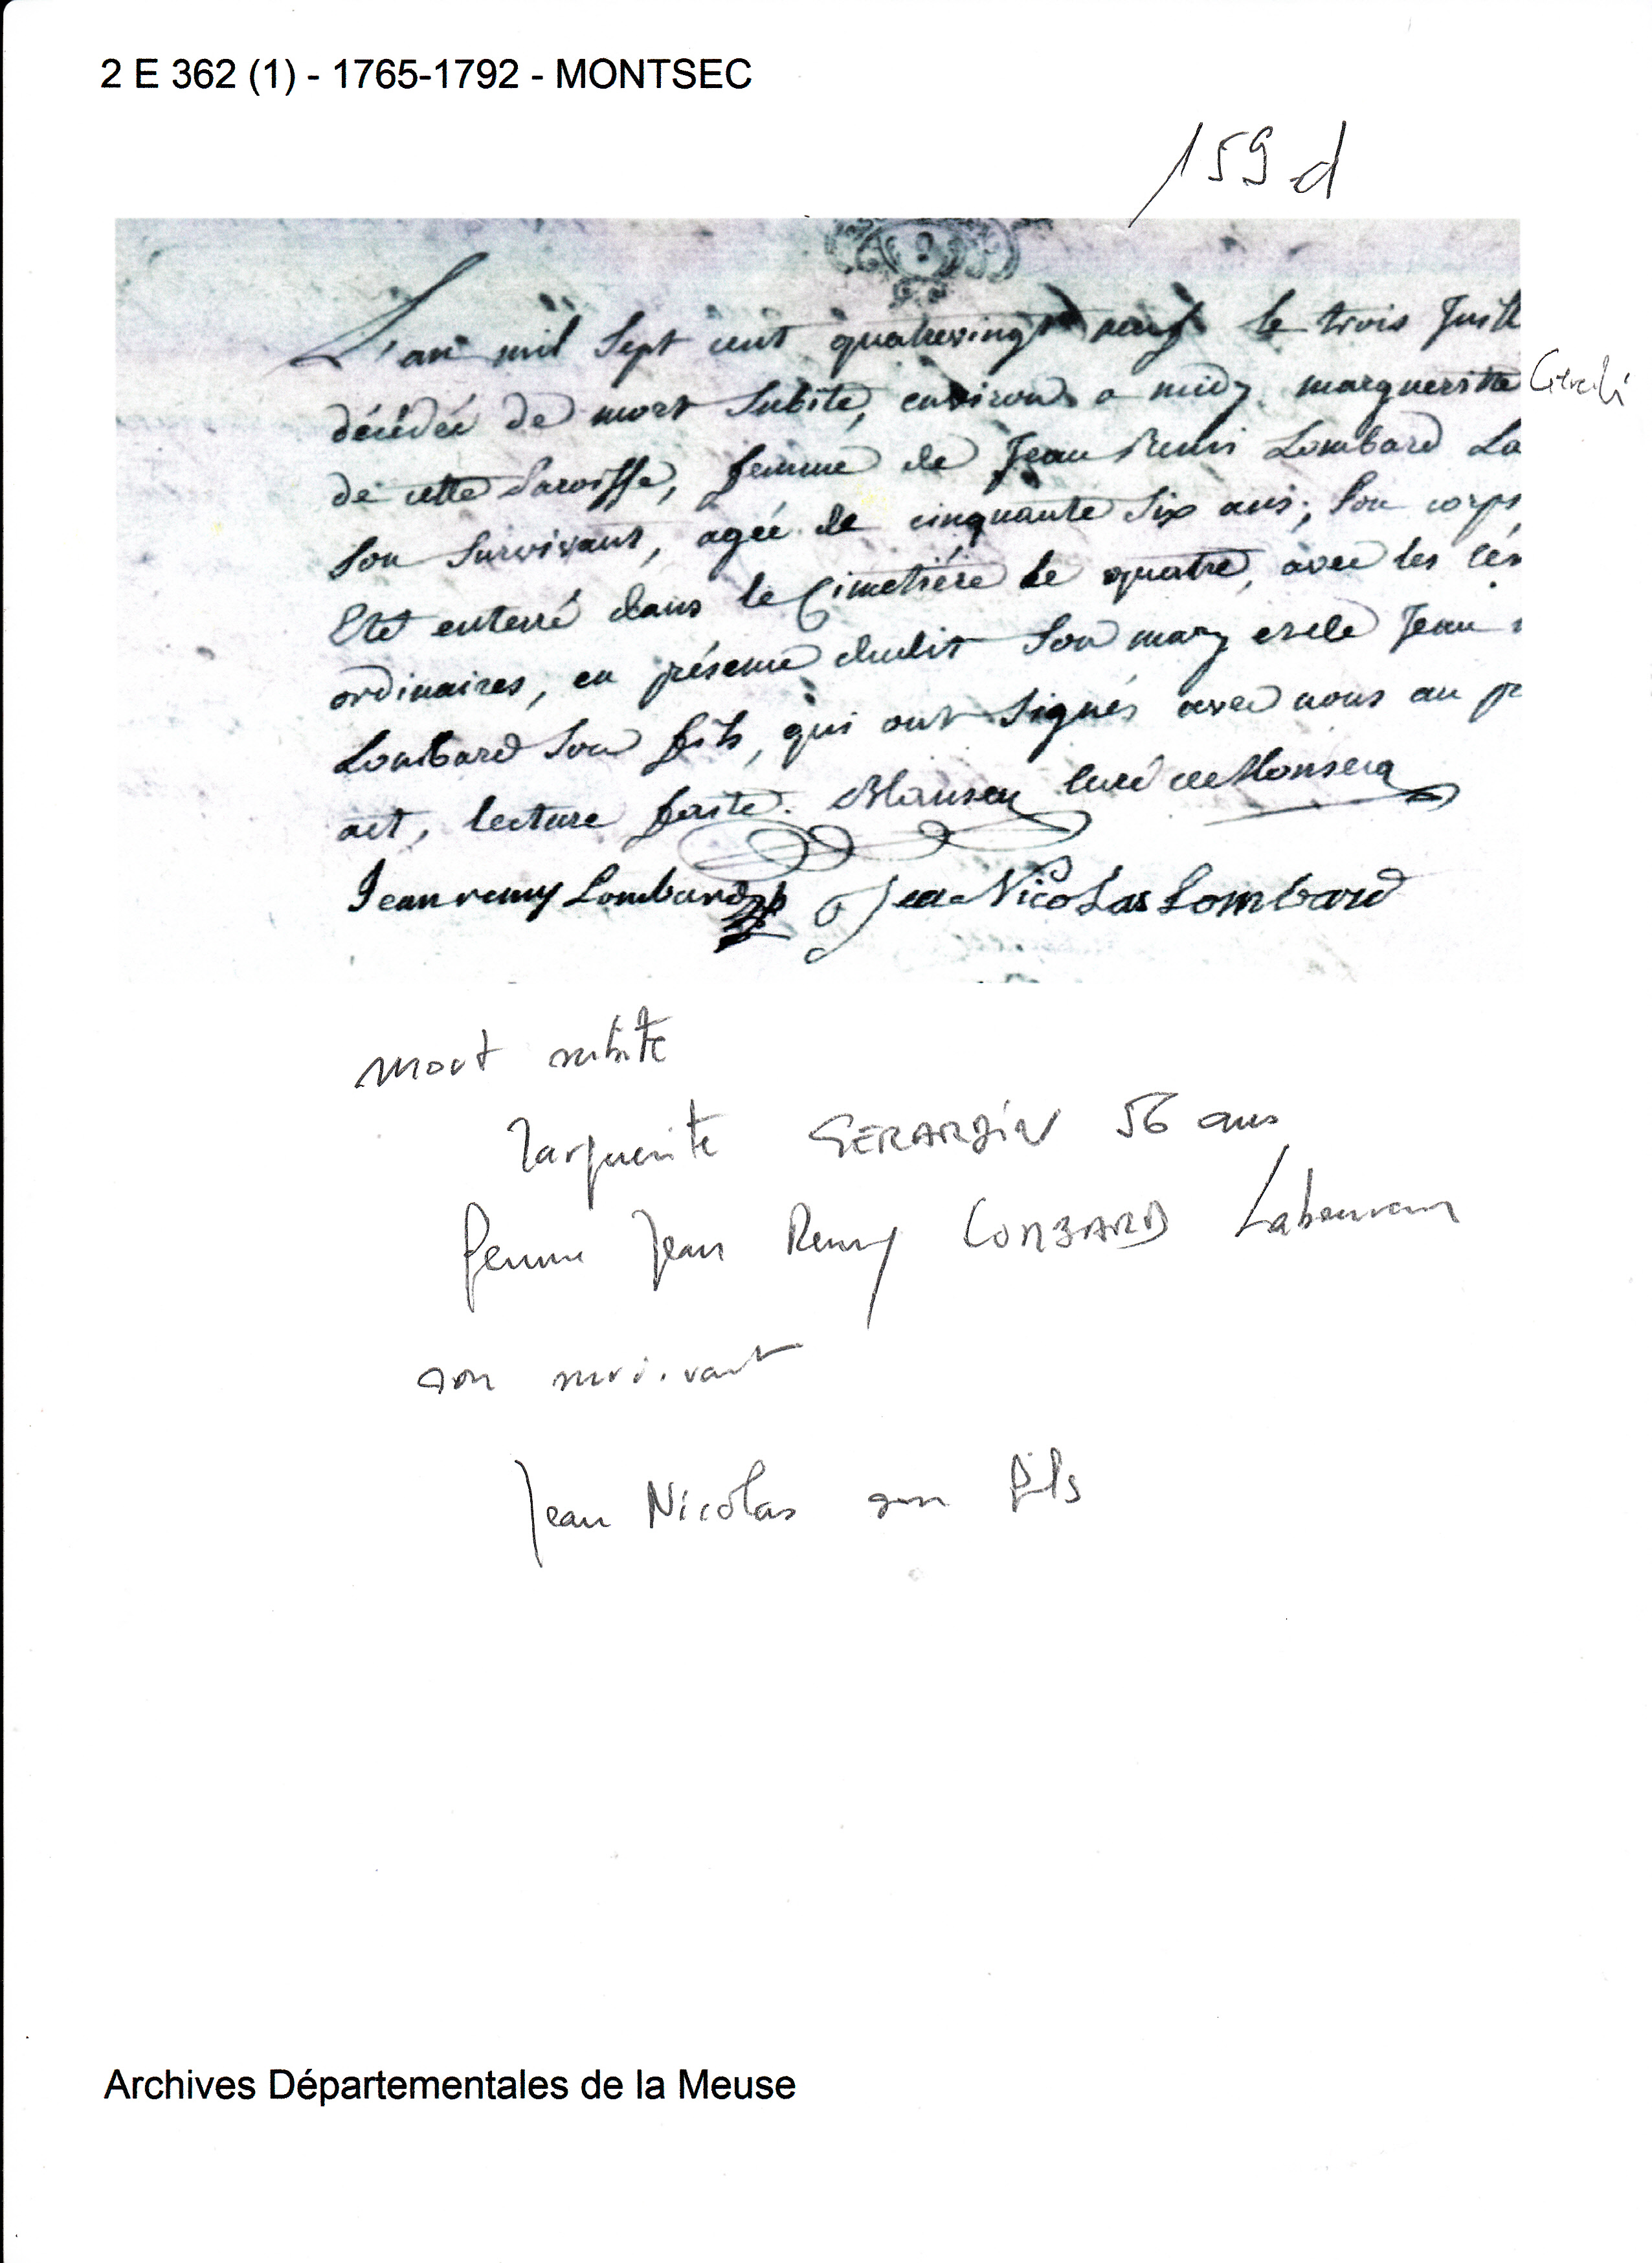 2 E 362 (1) - 1765-1792 - MONTSEC
159 d
L'an mil Sept cent quatrevingt neuf le trois Juill
décédée de mort Subite, environ a midy margueritte
de cette Paroisse, femme de Jean Remi Lombard La
Son Survivant, agée de cinquante Six ans; Son corps
Eté enterré dans le Cimetiére le quatre, avec les cér
ordinaires, en présence dudit Son mary et de Jean n
Lombard Son fils, qui ont Signés avec nous au pr
act, lecture faite. Mansuy Curé de Monsecq
Jean remy Lombard Jean Nicolas Lombard
mort subite
Marguerite GERARDIN 56 ans
femme Jean Remy LOMBARD Laboureur
son survivant
Jean Nicolas son fils
Archives Départementales de la Meuse